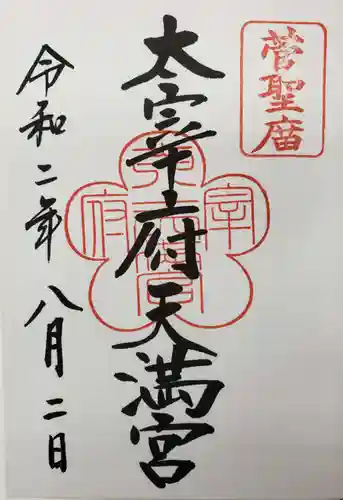 菅聖庿
太宰府天満宮
令和二年八月二日